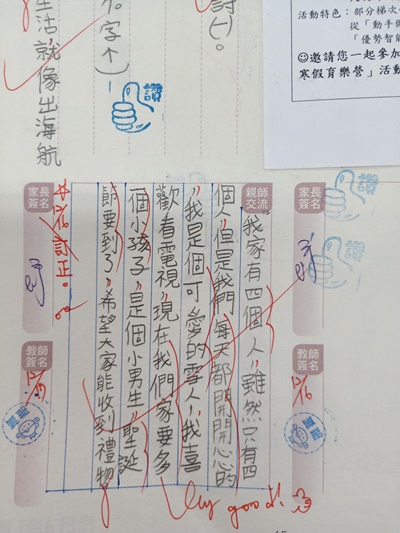 活動特色：部分梯次
從「動手
「優勢智
☺邀請您一起參加
寒假育樂營」活動
詩(一)。
字个)
生活就像出海航
讚
讚
讚
家長簽名
教師簽名
12/16
親師交流
我家有四個人，雖然只有四
個人，但是我們每天都開開心心的
，我是個可愛的雪人，我喜
歡看電視，現在我們家要多
一個小孩子，是個小男生，聖誕
節要到了，希望大家能收到禮物
Very good!
家長簽名
12/16
訂正。
教師簽名